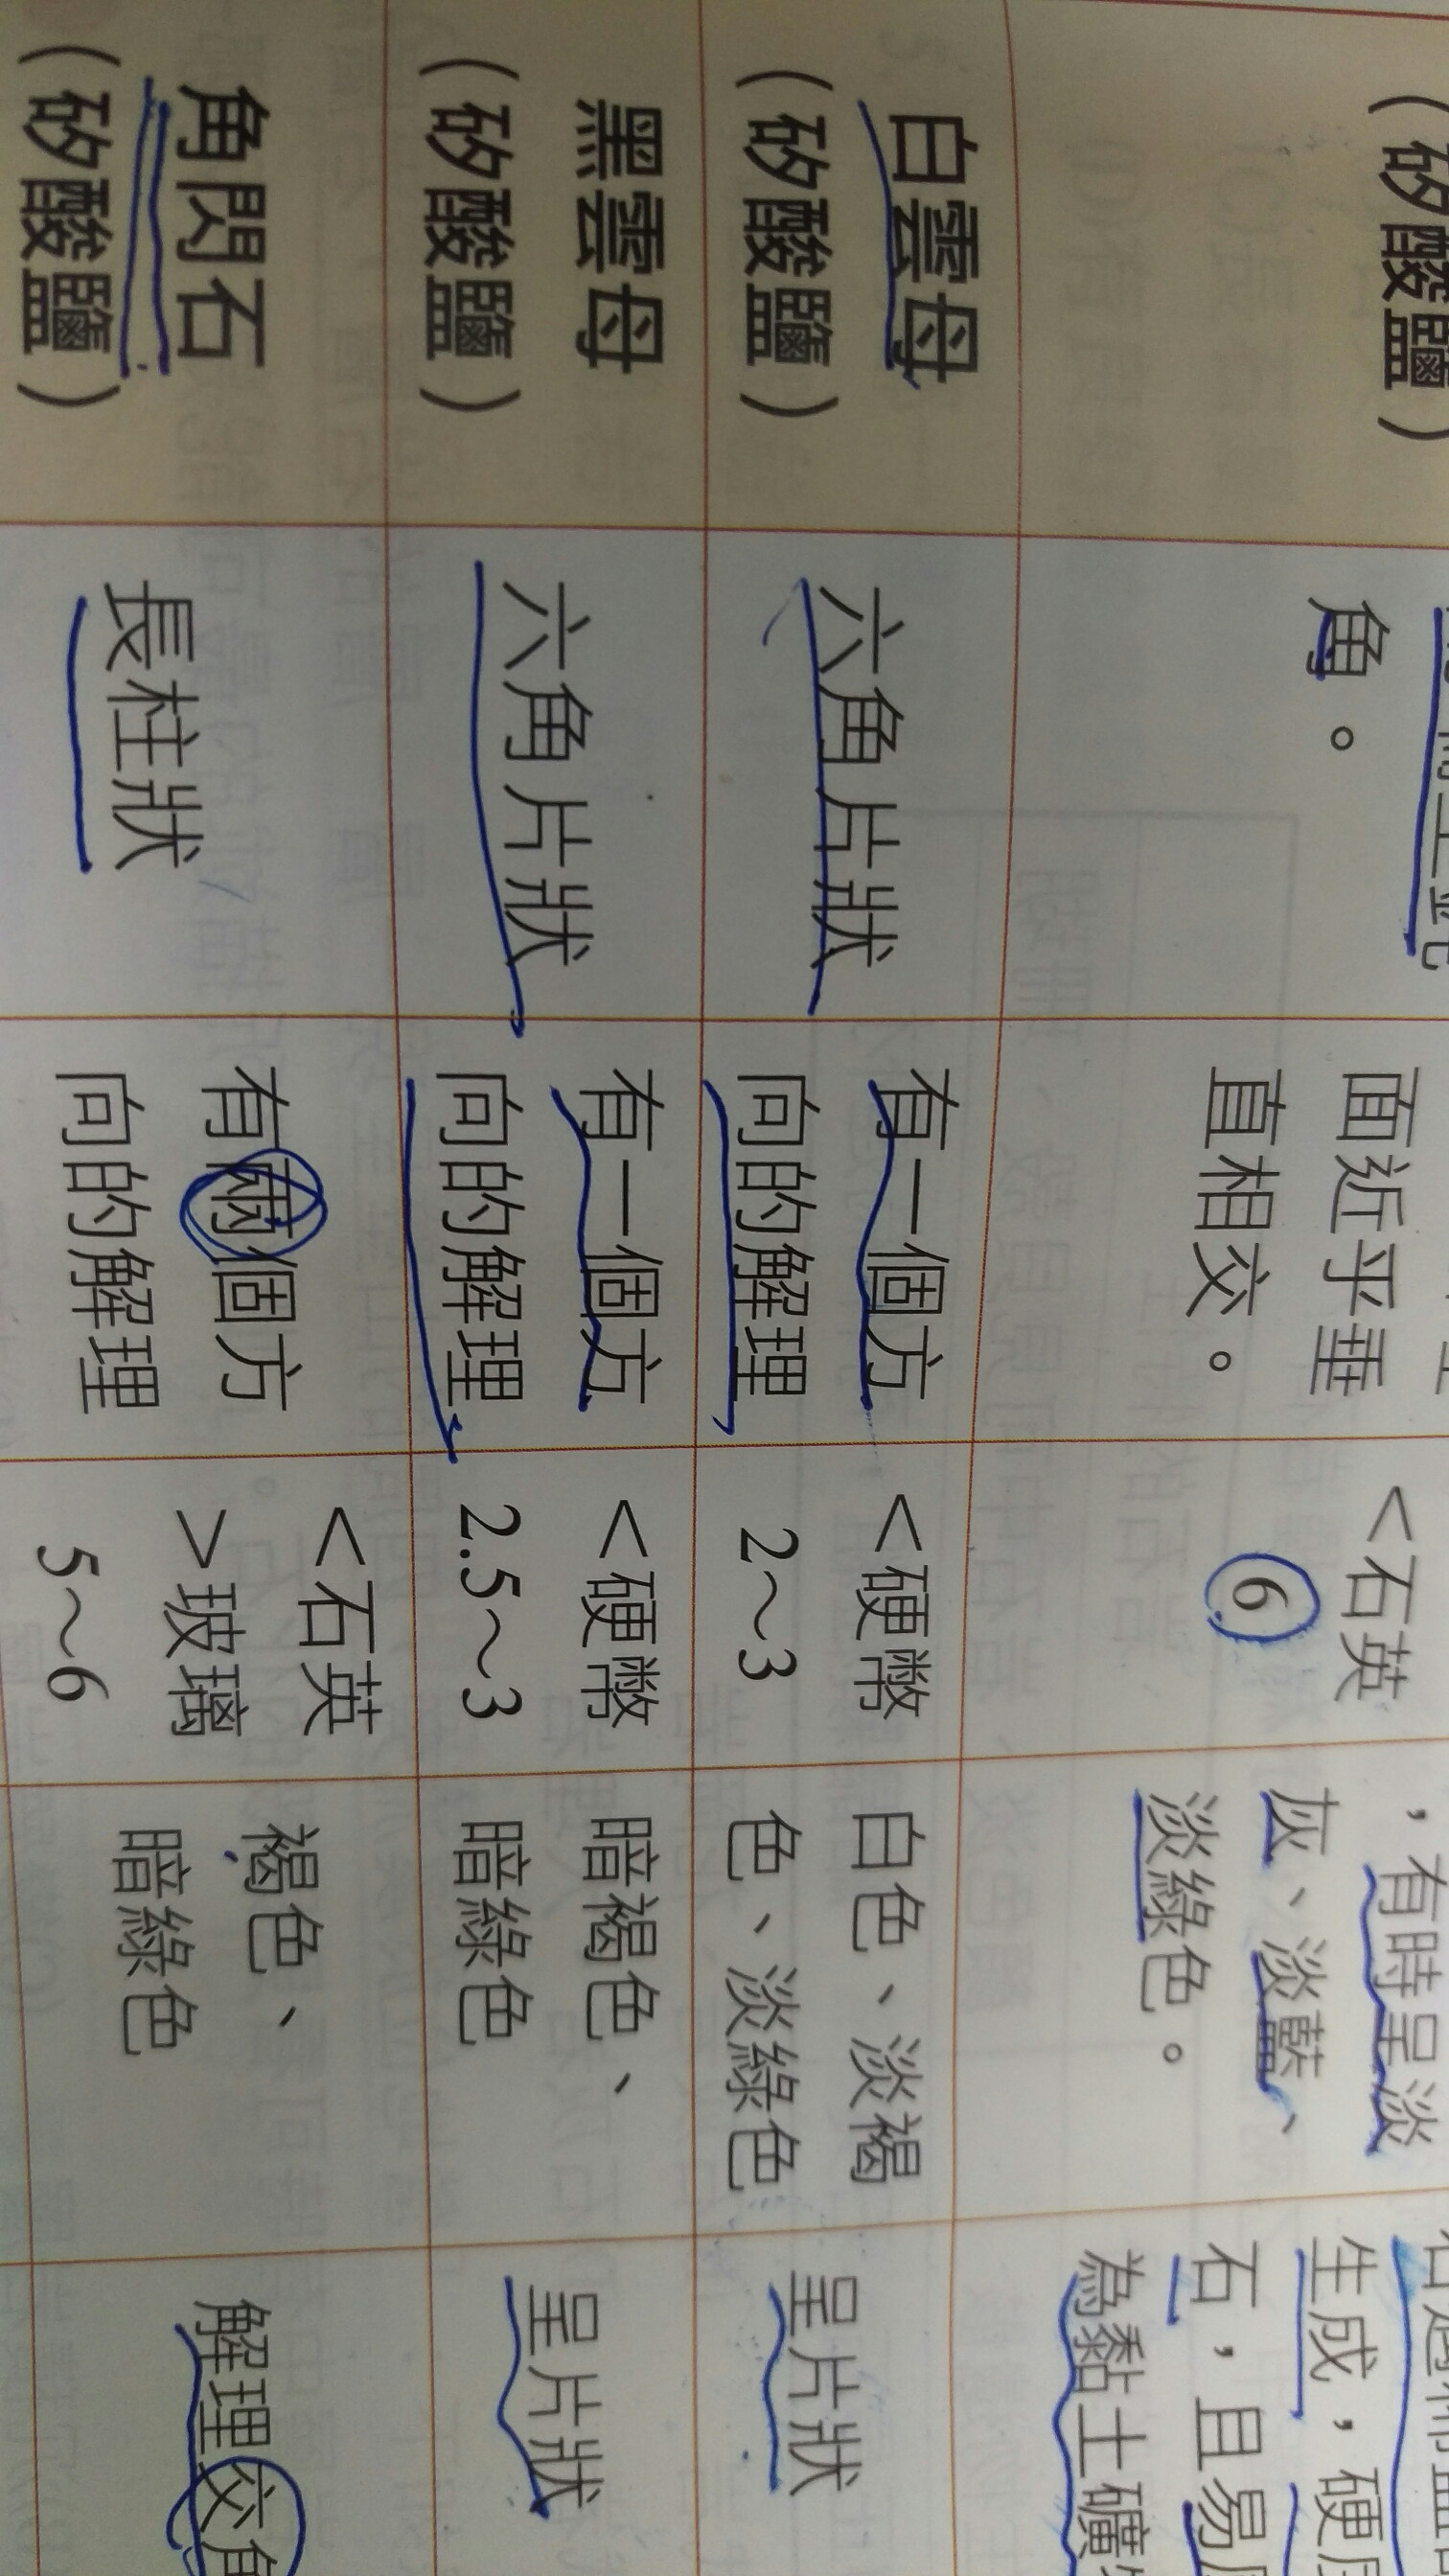 (矽酸鹽)
角。
面近乎垂
直相交。
<石英
6
,有時呈淡
灰、淡藍、
淡綠色。
生成,硬
石,且易
為黏土礦
白雲母
(矽酸鹽)
六角片狀
有一個方
向的解理
<硬幣
2~3
白色、淡褐
色、淡綠色
呈片狀
黑雲母
(矽酸鹽)
六角片狀
有一個方
向的解理
<硬幣
2.5~3
暗褐色、
暗綠色
呈片狀
角閃石
(矽酸鹽)
長柱狀
有兩個方
向的解理
<石英
>玻璃
5~6
褐色、
暗綠色
解理交角